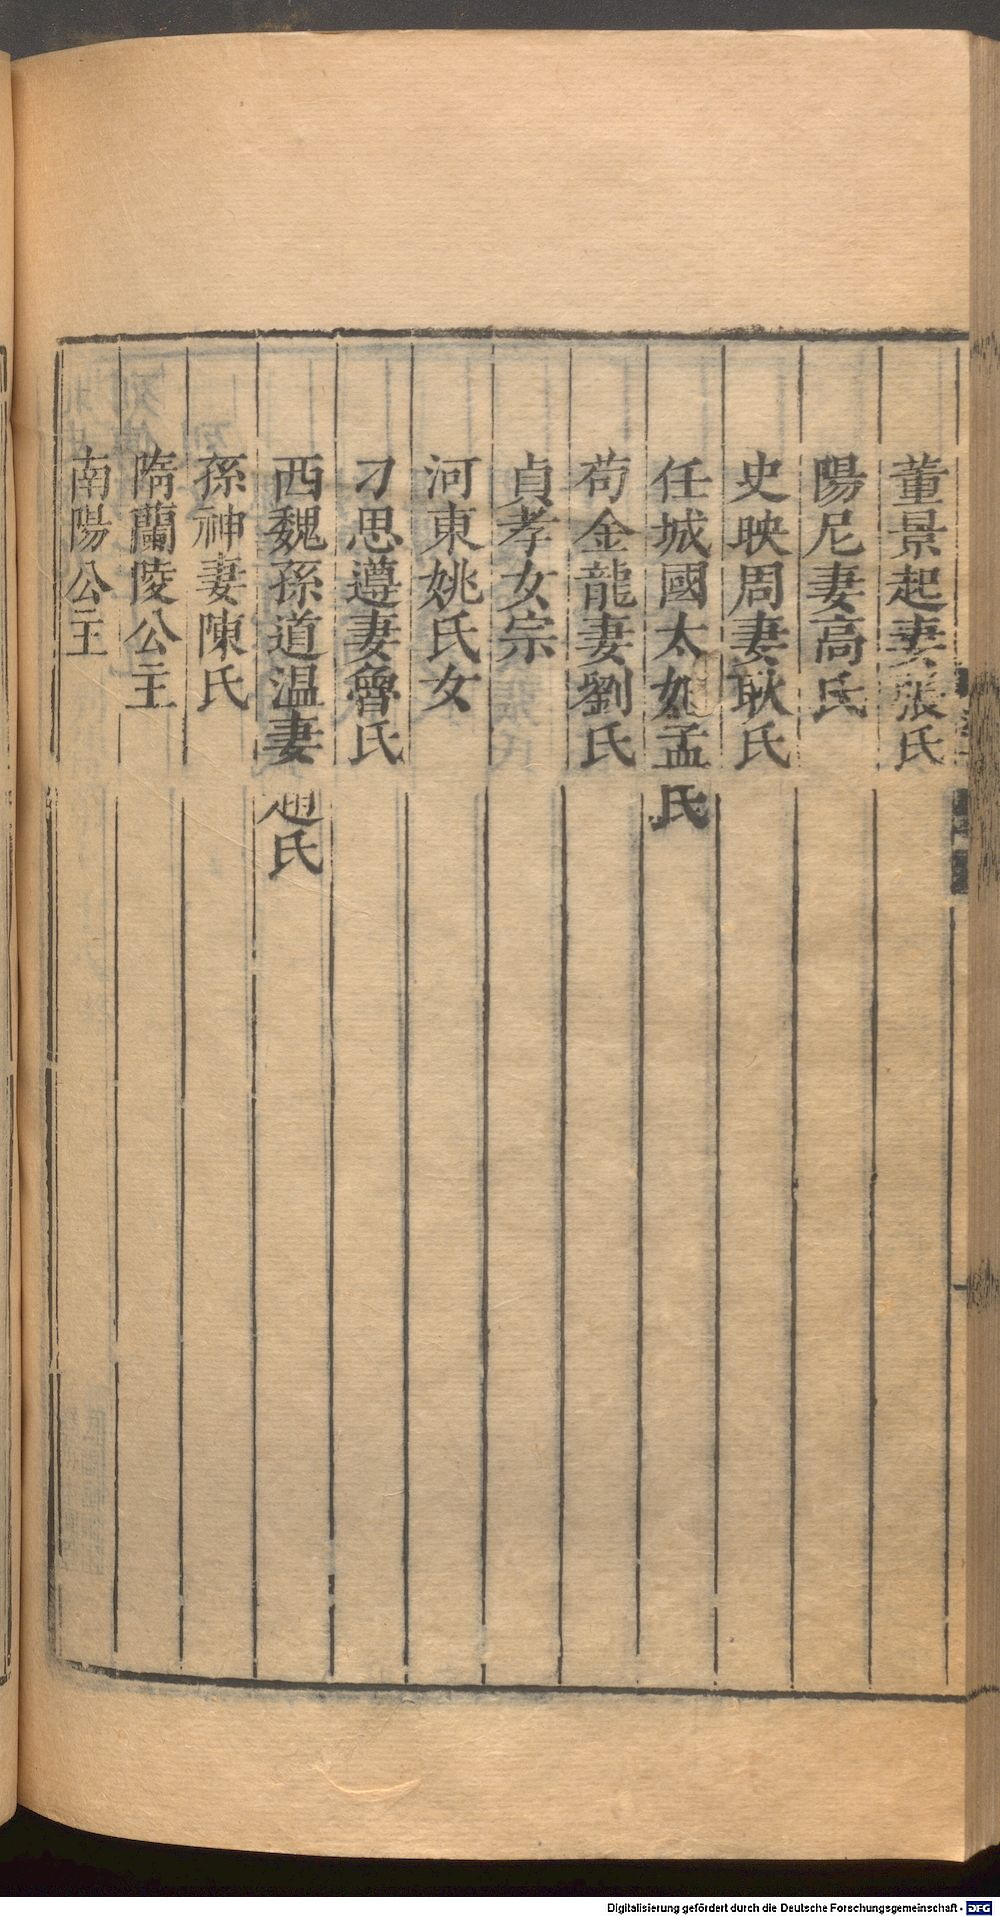 董景起妻張氏
陽尼妻高氏
史映周妻耿氏
任城國太妃孟氏
苟金龍妻劉氏
貞孝女宗
河東姚氏女
刁思遵妻魯氏
西魏孫道温妻趙氏
孫神妻陳氏
隋蘭陵公主
南陽公主
Digitalisierung gefördert durch die Deutsche Forschungsgemeinschaft - DFG